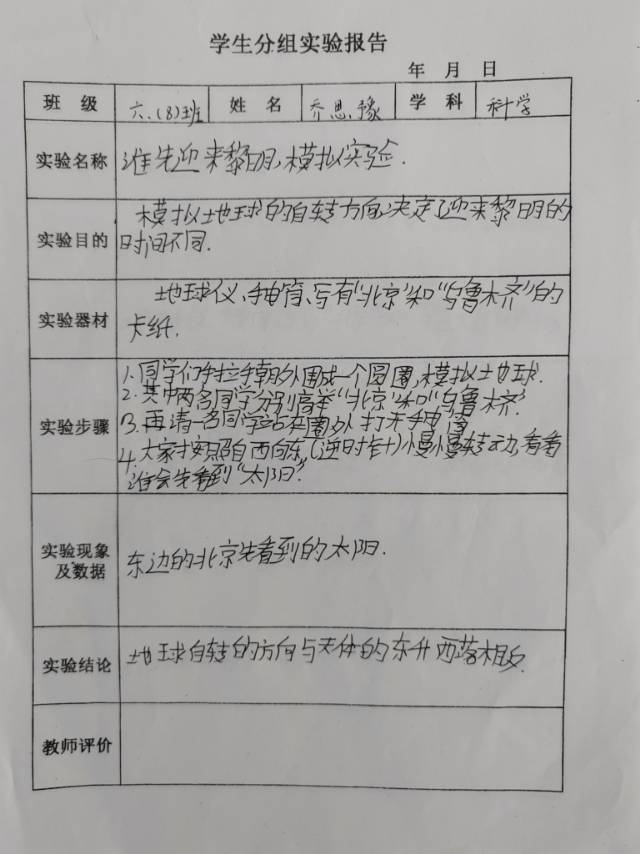 学生分组实验报告
年 月 日
班 级 六.(8)班 姓 名 乔思豫 学 科 科学
实验名称 谁先迎来黎明,模拟实验.
实验目的 模拟地球的自转方向决定了迎来黎明的
时间不同.
实验器材 地球仪、手电筒、写有“北京”和“乌鲁木齐”的
卡纸.
实验步骤 1.同学们手拉手朝外围成一个圆圈,模拟地球.
2.其中两名同学分别高举“北京”和“乌鲁木齐”
3.再请一名同学站在圈外打开手电筒
4.大家按照自西向东,(逆时针)慢慢转动,看看
谁会先看到“太阳”.
实验现象
及数据 东边的北京先看到的太阳.
实验结论 地球自转的方向与天体的东升西落相反.
教师评价